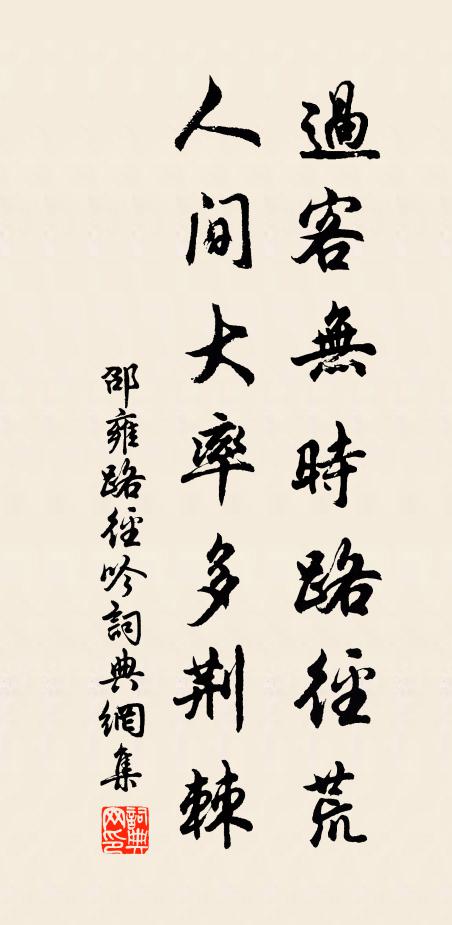 過客無時路徑荒
人間大率多荆棘
邵雍路徑吟詞典網集
詞典網印